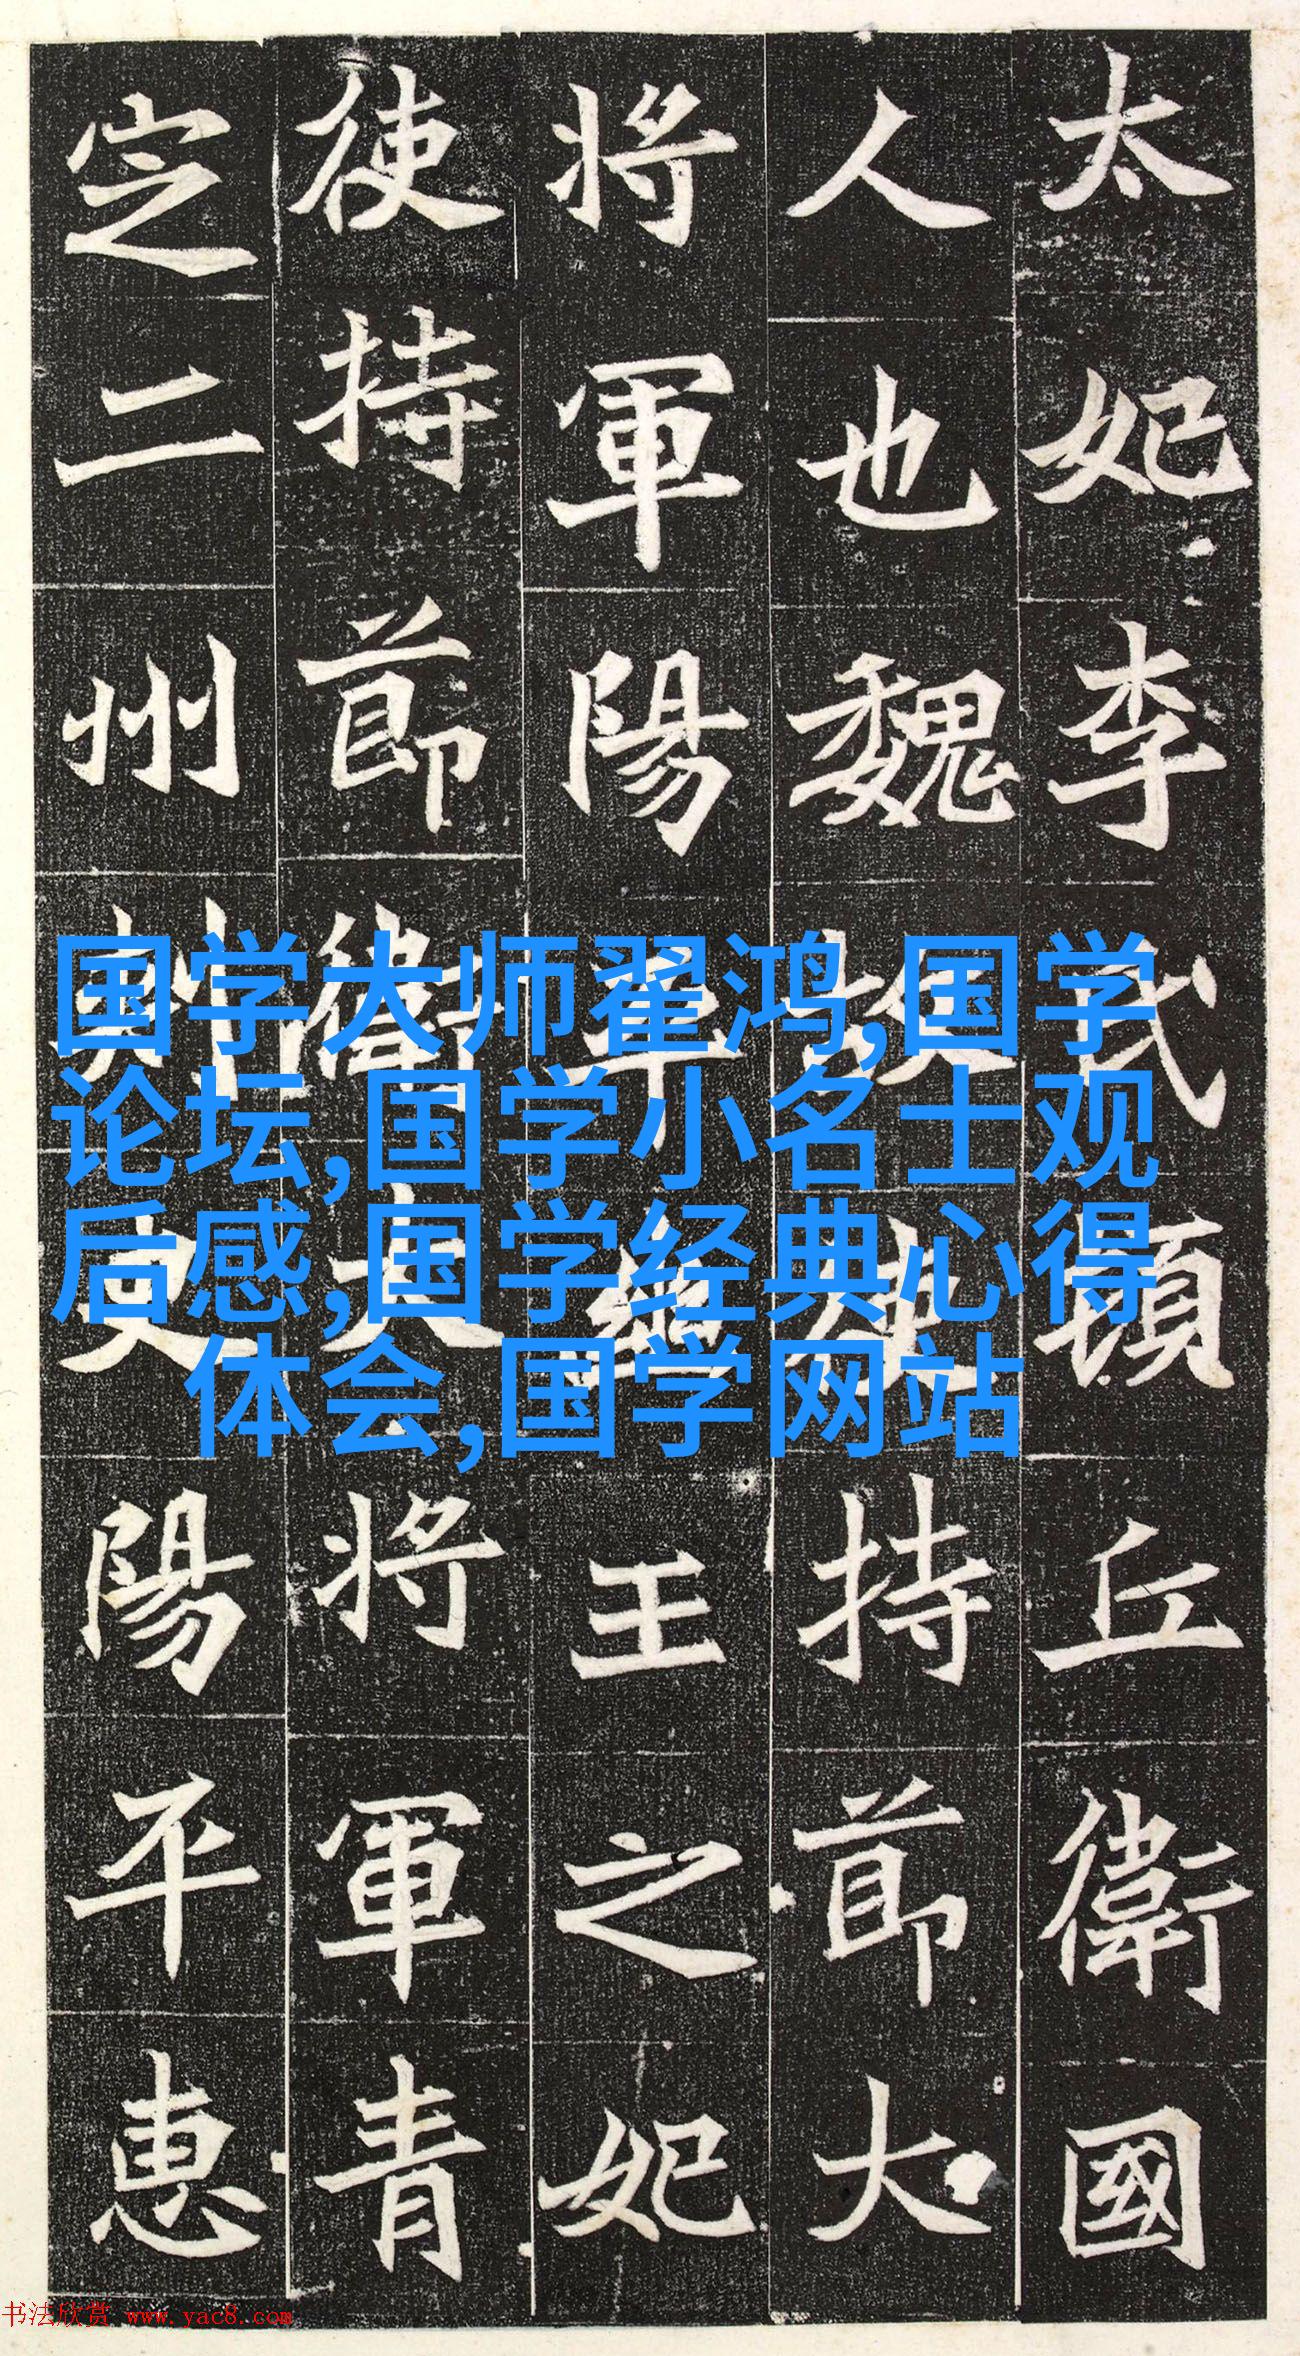 太妃李氏頓丘衛國
人也魏故使持節大
將軍陽平幽王之妃
使持節衛大將軍青
定二州刺史陽平惠
国学大师翟鸿,国学
论坛,国学小名士观
后感,国学经典心得
体会,国学网站
书法欣赏 www.yac8.com